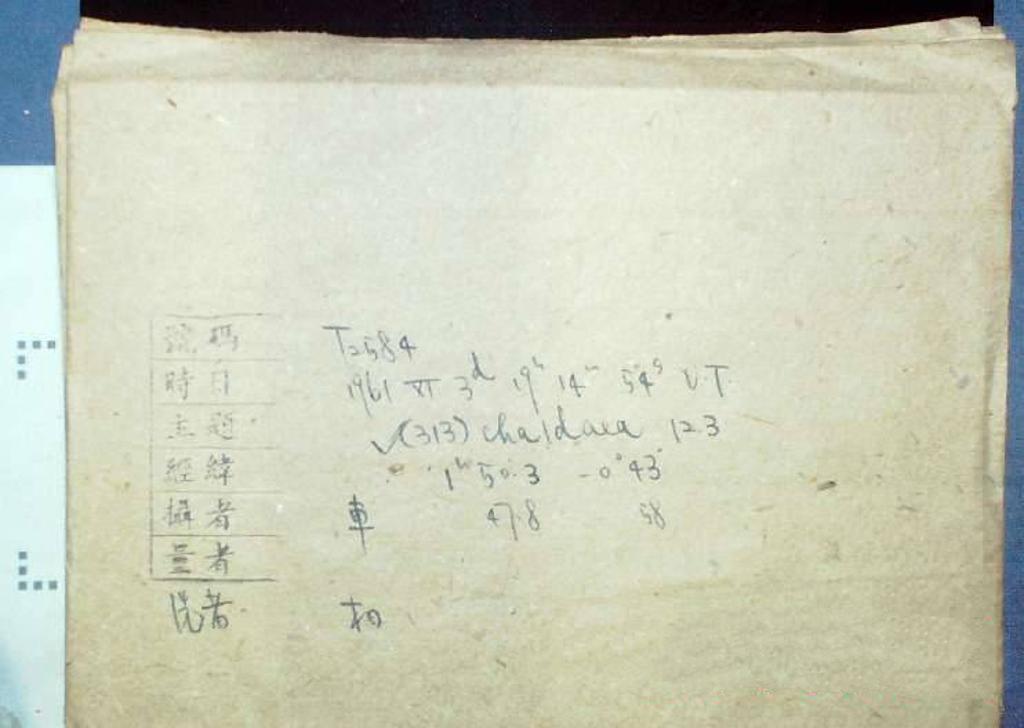 號碼 T2584
時日 1961 VI 3d 19h 14m 54s U.T.
主題 √(313) chaldaea 12.3
經緯 1h 50.3 -0° 43'
攝者 車 47.8 58
量者
洗者 相